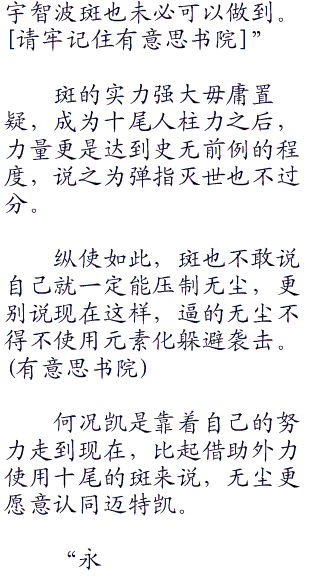 宇智波斑也未必可以做到。
[请牢记住有意思书院]”
斑的实力强大毋庸置
疑，成为十尾人柱力之后，
力量更是达到史无前例的程
度，说之为弹指灭世也不过
分。
纵使如此，斑也不敢说
自己就一定能压制无尘，更
别说现在这样，逼的无尘不
得不使用元素化躲避袭击。
(有意思书院)
何况凯是靠着自己的努
力走到现在，比起借助外力
使用十尾的斑来说，无尘更
愿意认同迈特凯。
“永